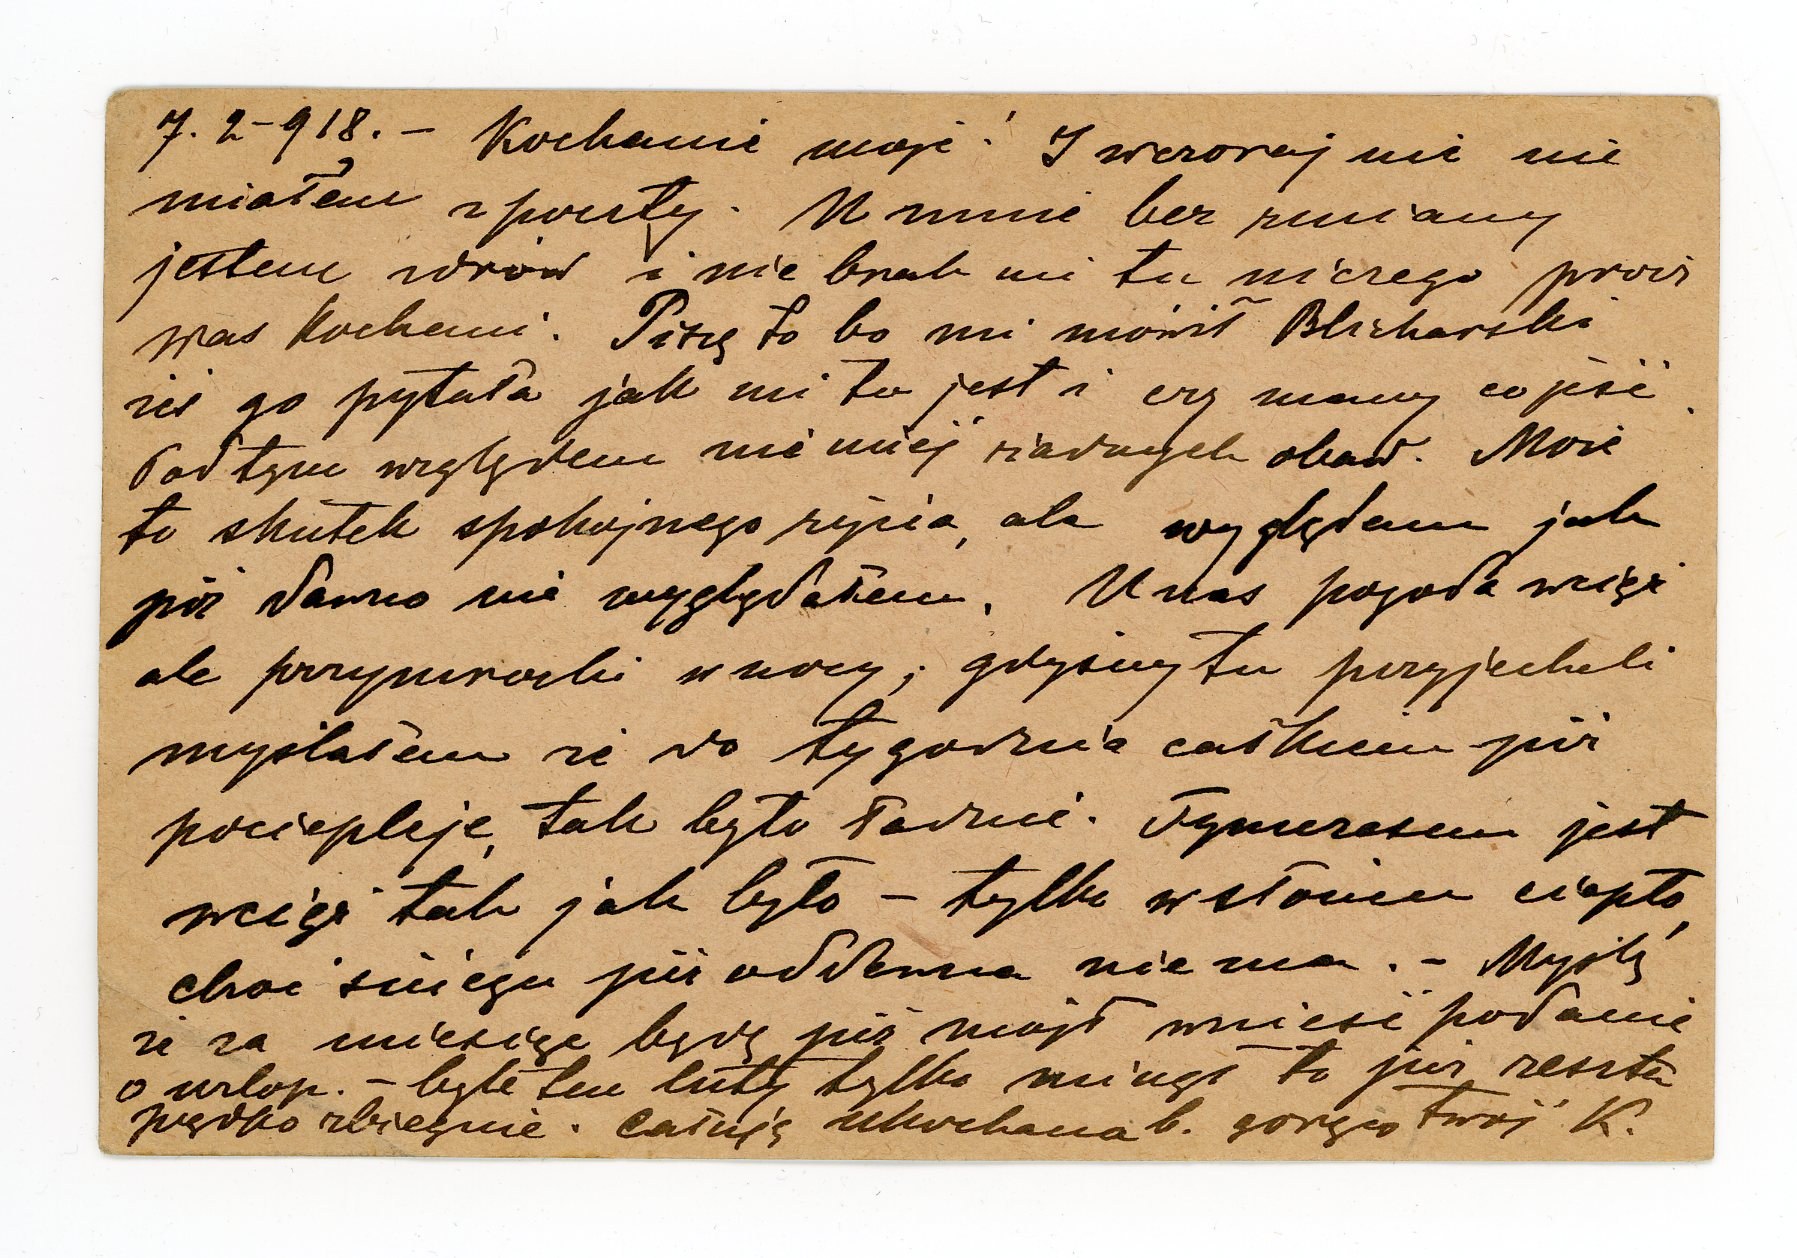 7. 2 - 918. - Kochanie moje! I wczoraj nic nie
miałem z poczty. U mnie bez zmiany
jestem zdrów i nie brak mi tu niczego prócz
was Kochani. Piszę to bo mi mówił Blicharski
żeś go pytała jak mi tu jest i czy mamy co jeść.
Pod tym względem nie miej żadnych obaw. Może
to skutek spokojnego życia, ale wyglądam jak
już dawno nie wyglądałem. U nas pogoda wciąż
ale przymrozki w nocy; gdyśmy tu przyjechali
myślałem że do tygodnia całkiem już
pociepleje, tak było ładnie. Tymczasem jest
wciąż tak jak było - tylko w słońcu ciepło,
choć śniegu już oddawna niema. - Myślę
że za miesiąc będę już mógł wnieść podanie
o urlop. - byle ten luty tylko minął to już reszta
prędko zbiegnie. Całuję ukochana b. gorąco twój K.